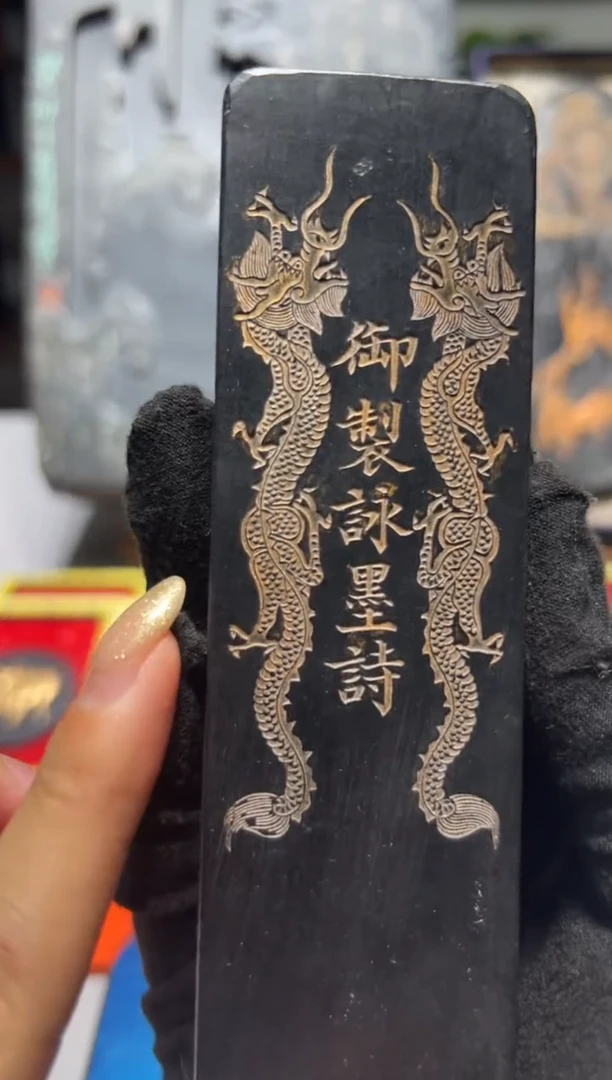 御製詠墨詩